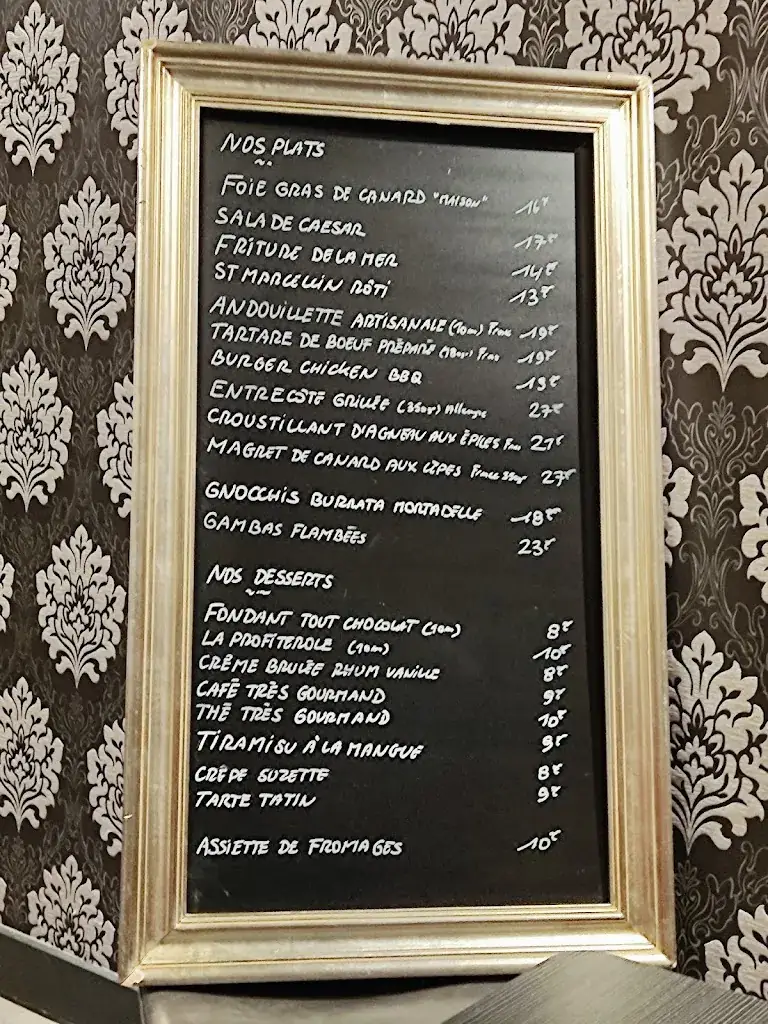 NOS PLATS
FOIE GRAS DE CANARD "MAISON" 16€
SALADE CAESAR 17€
FRITURE DE LA MER 14€
ST MARCELLIN RÔTI 13€
ANDOUILLETTE ARTISANALE (10m) 19€
TARTARE DE BOEUF PRÉPARÉ (180gr) 19€
BURGER CHICKEN BBQ
ENTRECOTE GRILLÉE (350gr) 27€
CROUSTILLANT D'AGNEAU AUX ÉPICES 21€
MAGRET DE CANARD AUX CÈPES France 350gr 27€
GNOCCHIS BURRATA MORTADELLE 18€
GAMBAS FLAMBÉES 23€
NOS DESSERTS
FONDANT TOUT CHOCOLAT (10m) 8€
LA PROFITEROLE (10m) 10€
CRÈME BRULÉE RHUM VANILLE 8€
CAFÉ TRÈS GOURMAND 9€
THÉ TRÈS GOURMAND 10€
TIRAMISU À LA MANGUE 9€
CRÊPE SUZETTE 8€
TARTE TATIN 9€
ASSIETTE DE FROMAGES 10€